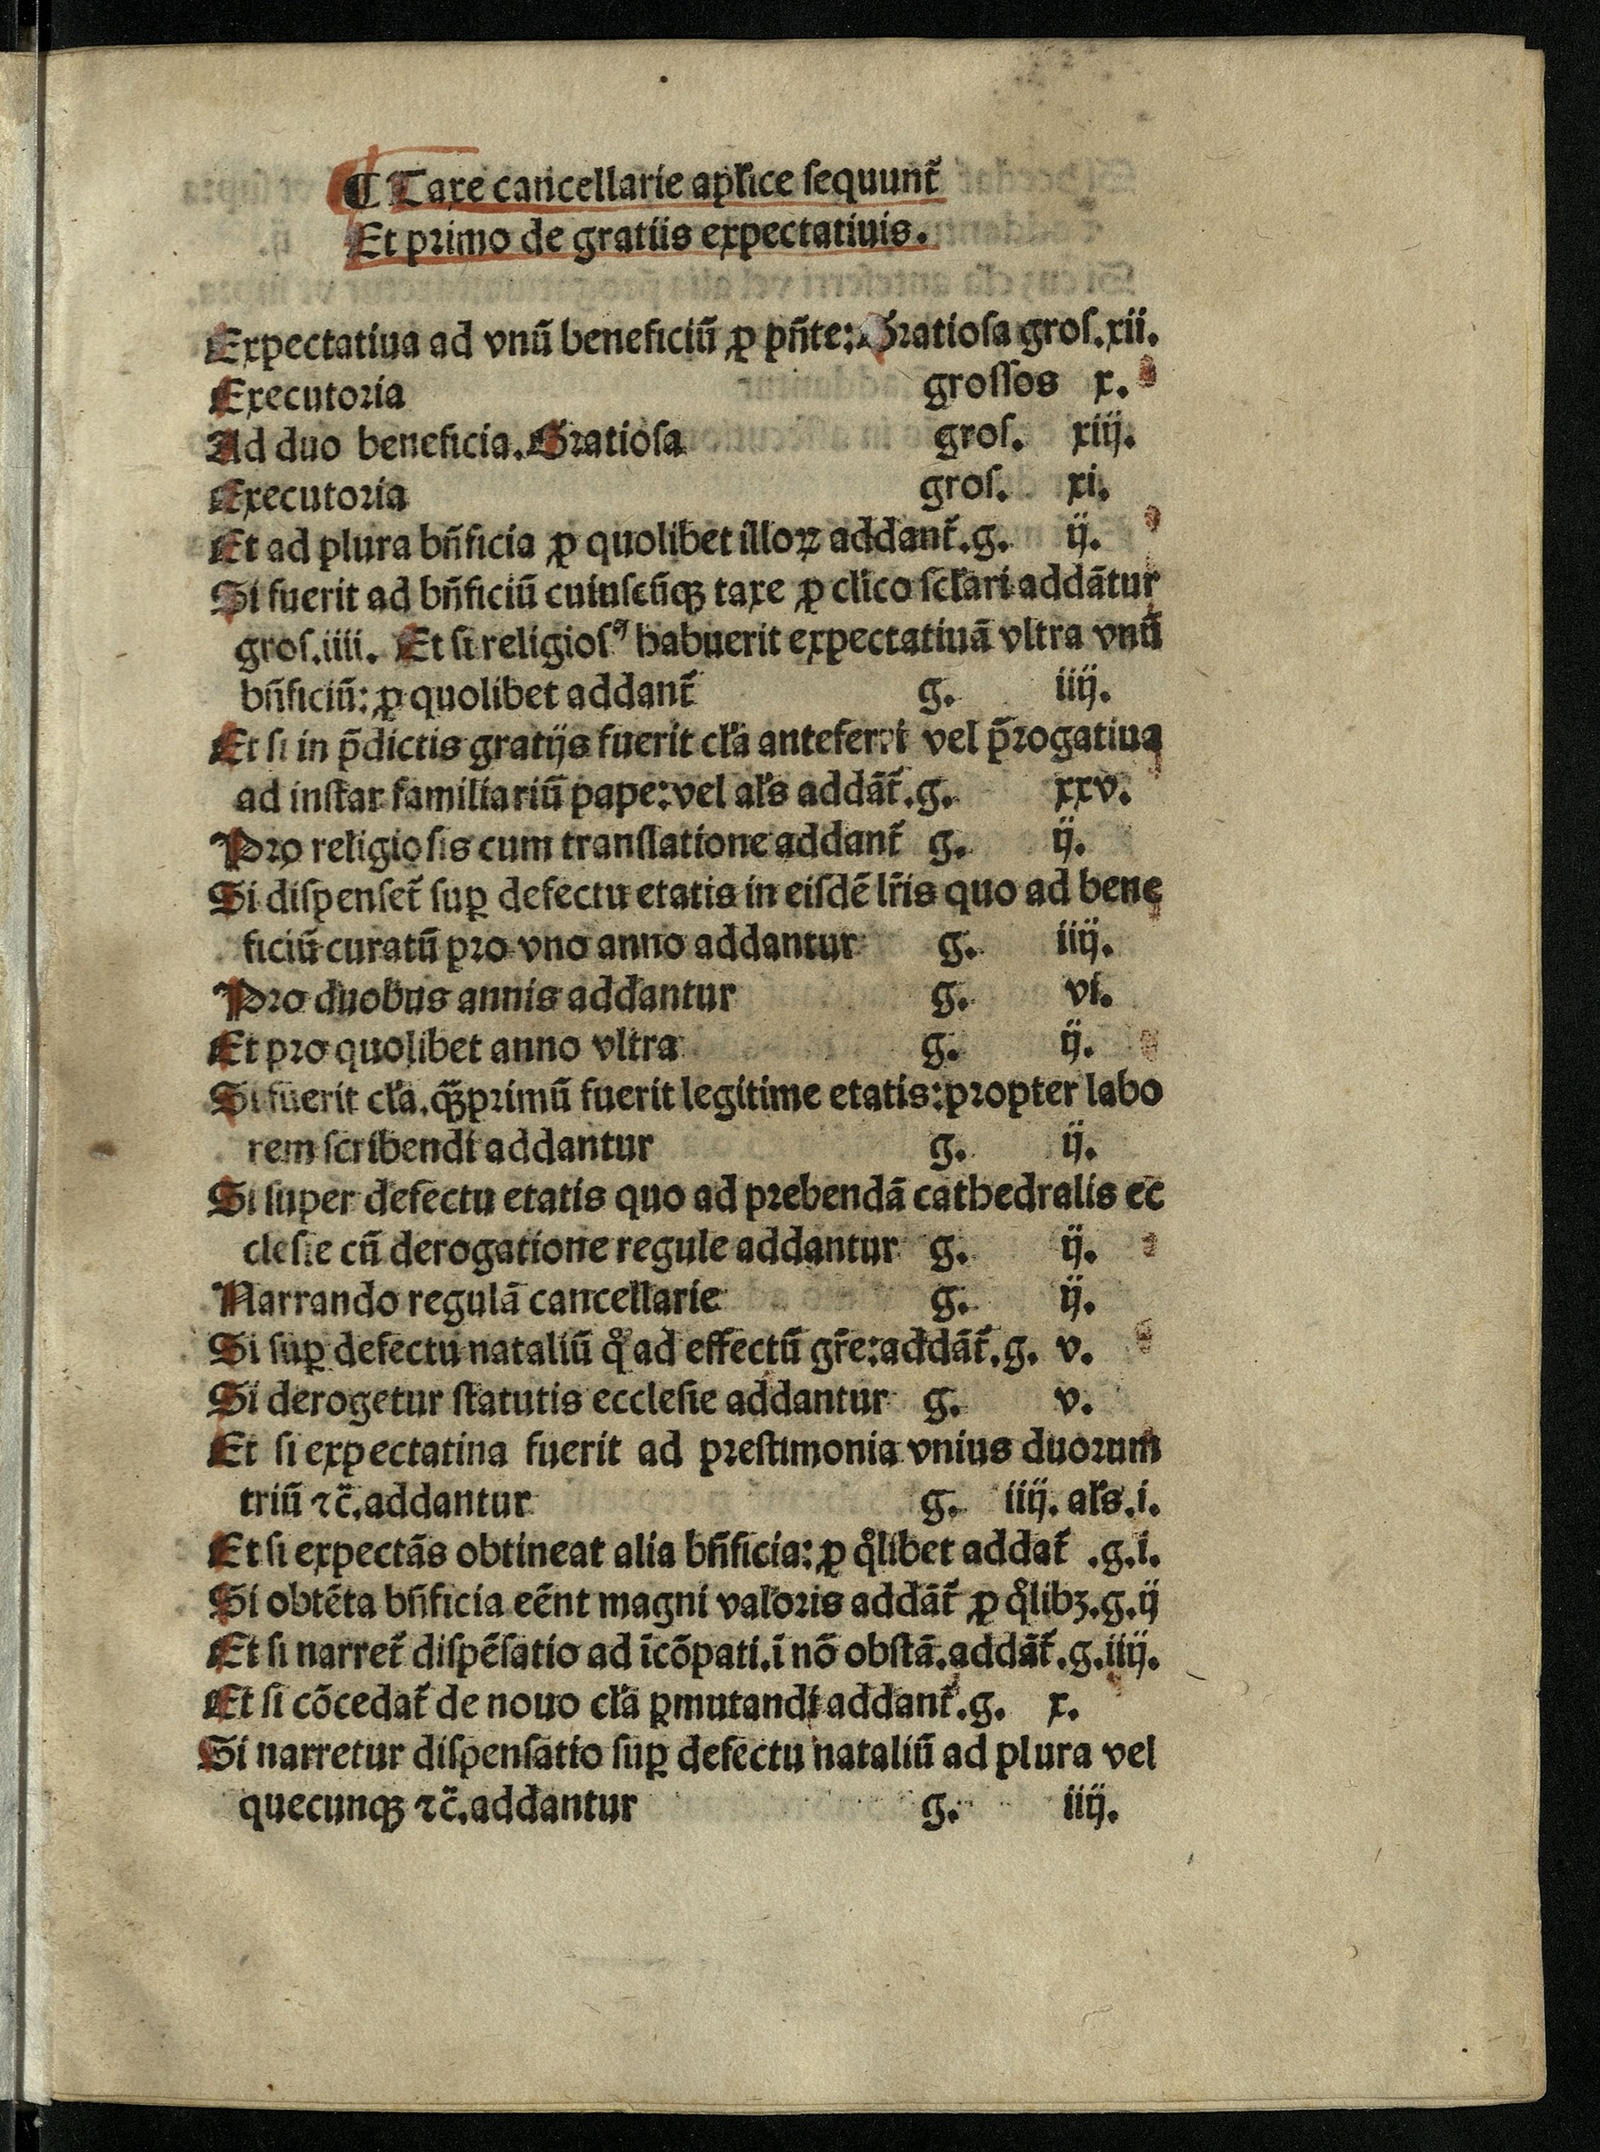 ¶ Taxe cancellarie apl'ice sequunt᷑
Et primo de gratiis expectatiuis.
Expectatiua ad vnū beneficiū ꝓ pn̄te: Gratiosa gros. xii.
Executoria grossos x.
Ad duo beneficia. Gratiosa gros. xiij.
Executoria gros. xi.
Et ad plura bn̄ficia ꝓ quolibet illoꝝ addant᷑. g. ij.
Si fuerit ad bn̄ficiū cuiuscūqꝫ taxe ꝓ cl'ico scl'ari addātur
gros. iiii. Et si religiosꝰ habuerit expectatiuā vltra vnū
bn̄ficiū: ꝓ quolibet addant᷑ g. iiij.
Et si in p̄dictis gratijs fuerit cl'a anteferri vel p̄rogatiua
ad instar familiariū pape: vel al's addāt᷑. g. xxv.
Pro religiosis cum translatione addant᷑ g. ij.
Si dispenset᷑ suꝑ defectu etatis in eisdē lr̄is quo ad bene
ficiū curatū pro vno anno addantur g. iiij.
Pro duobus annis addantur g. vi.
Et pro quolibet anno vltra g. ij.
Si fuerit cl'a. qꝫ̄primū fuerit legitime etatis: propter labo
rem scribendi addantur g. ij.
Si super defectu etatis quo ad prebendā cathedralis ec
clesie cū derogatione regule addantur g. ij.
Narrando regulā cancellarie g. ij.
Si suꝑ defectu nataliū qͦ ad effectū gr̄e: addāt᷑. g. v.
Si derogetur statutis ecclesie addantur g. v.
Et si expectatina fuerit ad prestimonia vnius duorum
triū ⁊c̄. addantur g. iiij. al's. i.
Et si expectās obtineat alia bn̄ficia: ꝓ qͦlibet addat᷑ .g. i.
Si obtēta bn̄ficia eēnt magni val'oris addāt᷑ ꝓ qͦlibꝫ. g. ij
Et si narret᷑ dispēsatio ad īcōpati. ī nō obstā. addāt᷑. g. iiij.
Et si cōcedat᷑ de nouo cl'a ꝑmutandi addant᷑. g. x.
Si narretur dispensatio suꝑ defectu nataliū ad plura vel
quecunqꝫ ⁊c̄. addantur g. iiij.